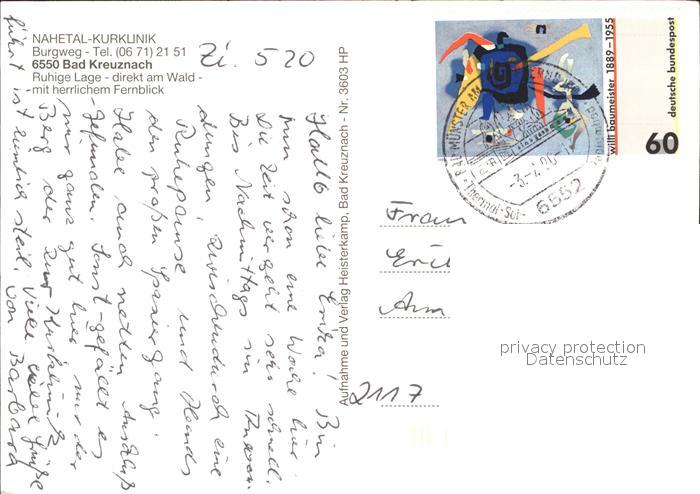 NAHETAL-KURKLINIK
Burgweg - Tel. (06 71) 21 51
6550 Bad Kreuznach
Ruhige Lage - direkt am Wald -
- mit herrlichem Fernblick
Zi. 520
Hallo liebe Erika! Bin
nun schon eine Woche hier.
Die Zeit vergeht sehr schnell.
Bis Nachmittags sind
dungen, zwischendurch eine
Ruhepause und Abends
den großen Spaziergang.
Habe auch netten Anschluß
gefunden. Sonst gefällt es
mir ganz gut hier nur der
Berg der zur Kurklinik
führt ist ziemlich steil. Viele liebe Grüße
von Barbara
Aufnahme und Verlag Heisterkamp, Bad Kreuznach - Nr. 3603 HP
willi baumeister 1889-1955
deutsche bundespost
60
BAD MÜNSTER AM
Thermal-Sol-
6552
Frau
2117
privacy protection
Datenschutz